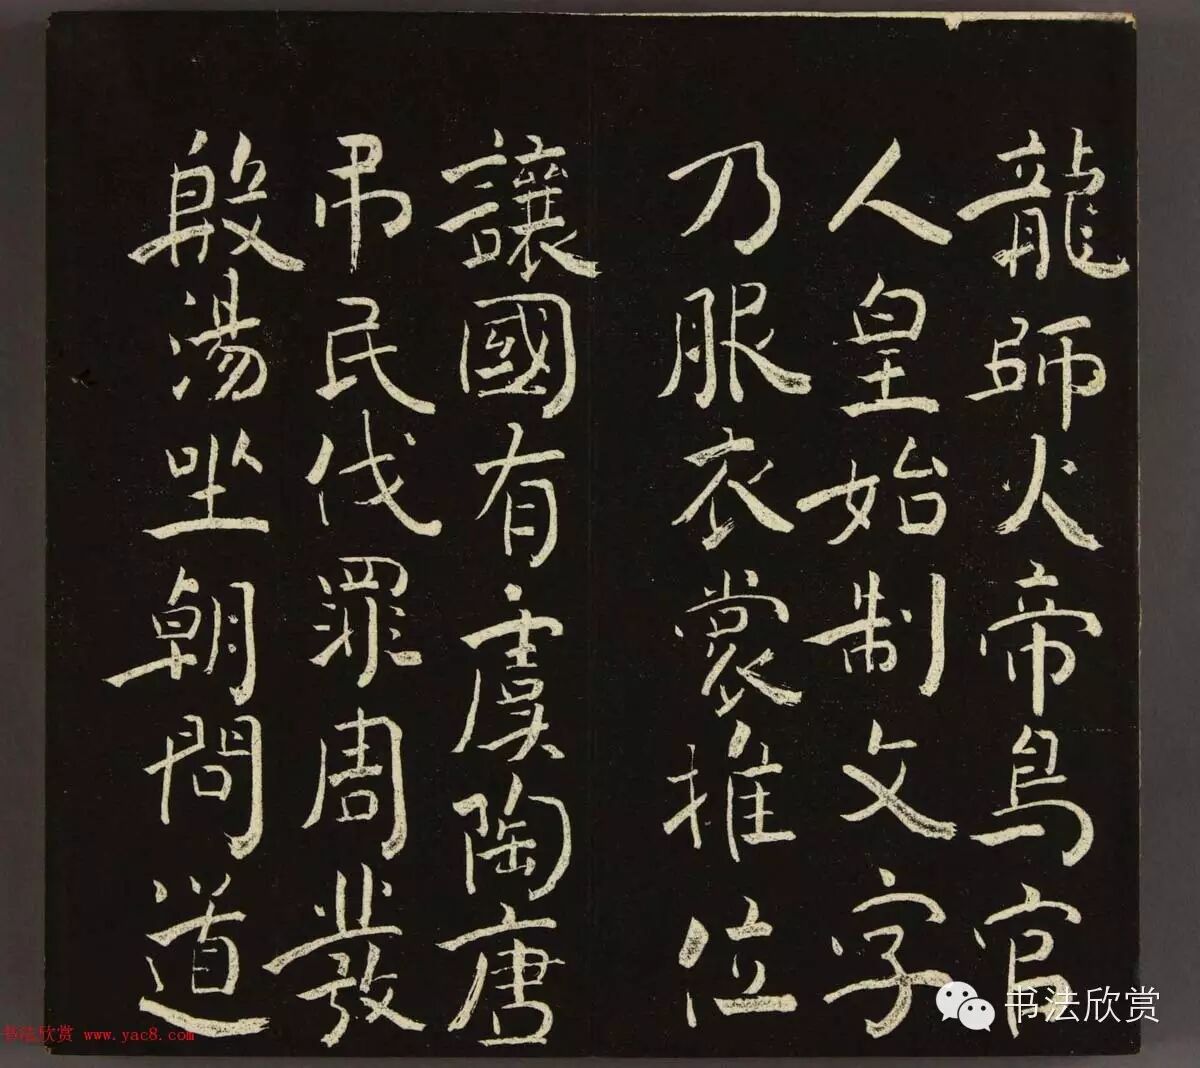 龍師火帝鳥官
人皇始制文字
乃服衣裳推位
讓國有虞陶唐
吊民伐罪周發
殷湯坐朝問道
书法欣赏
书法欣赏 www.yac8.com